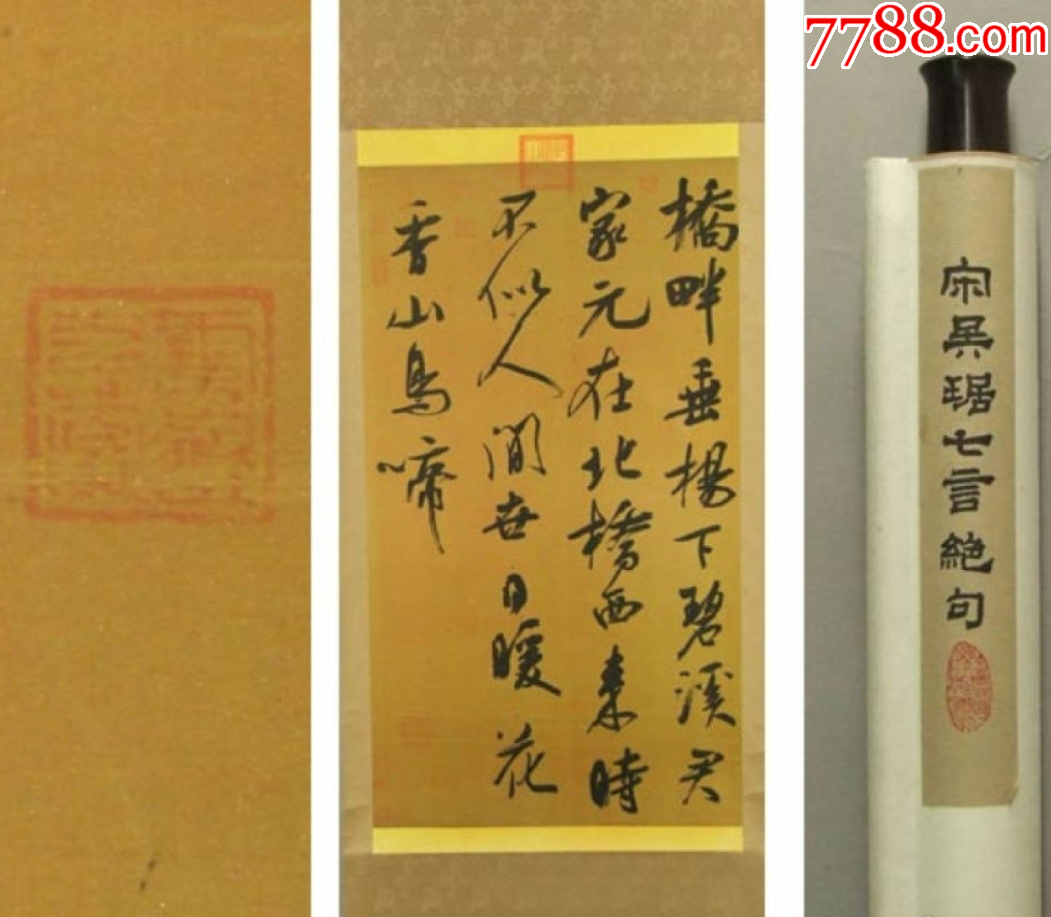 橋畔垂楊下碧溪君
家元在北橋西來時
不似人間世日暖花
香山鳥啼
宋吳琚七言絕句
7788.com